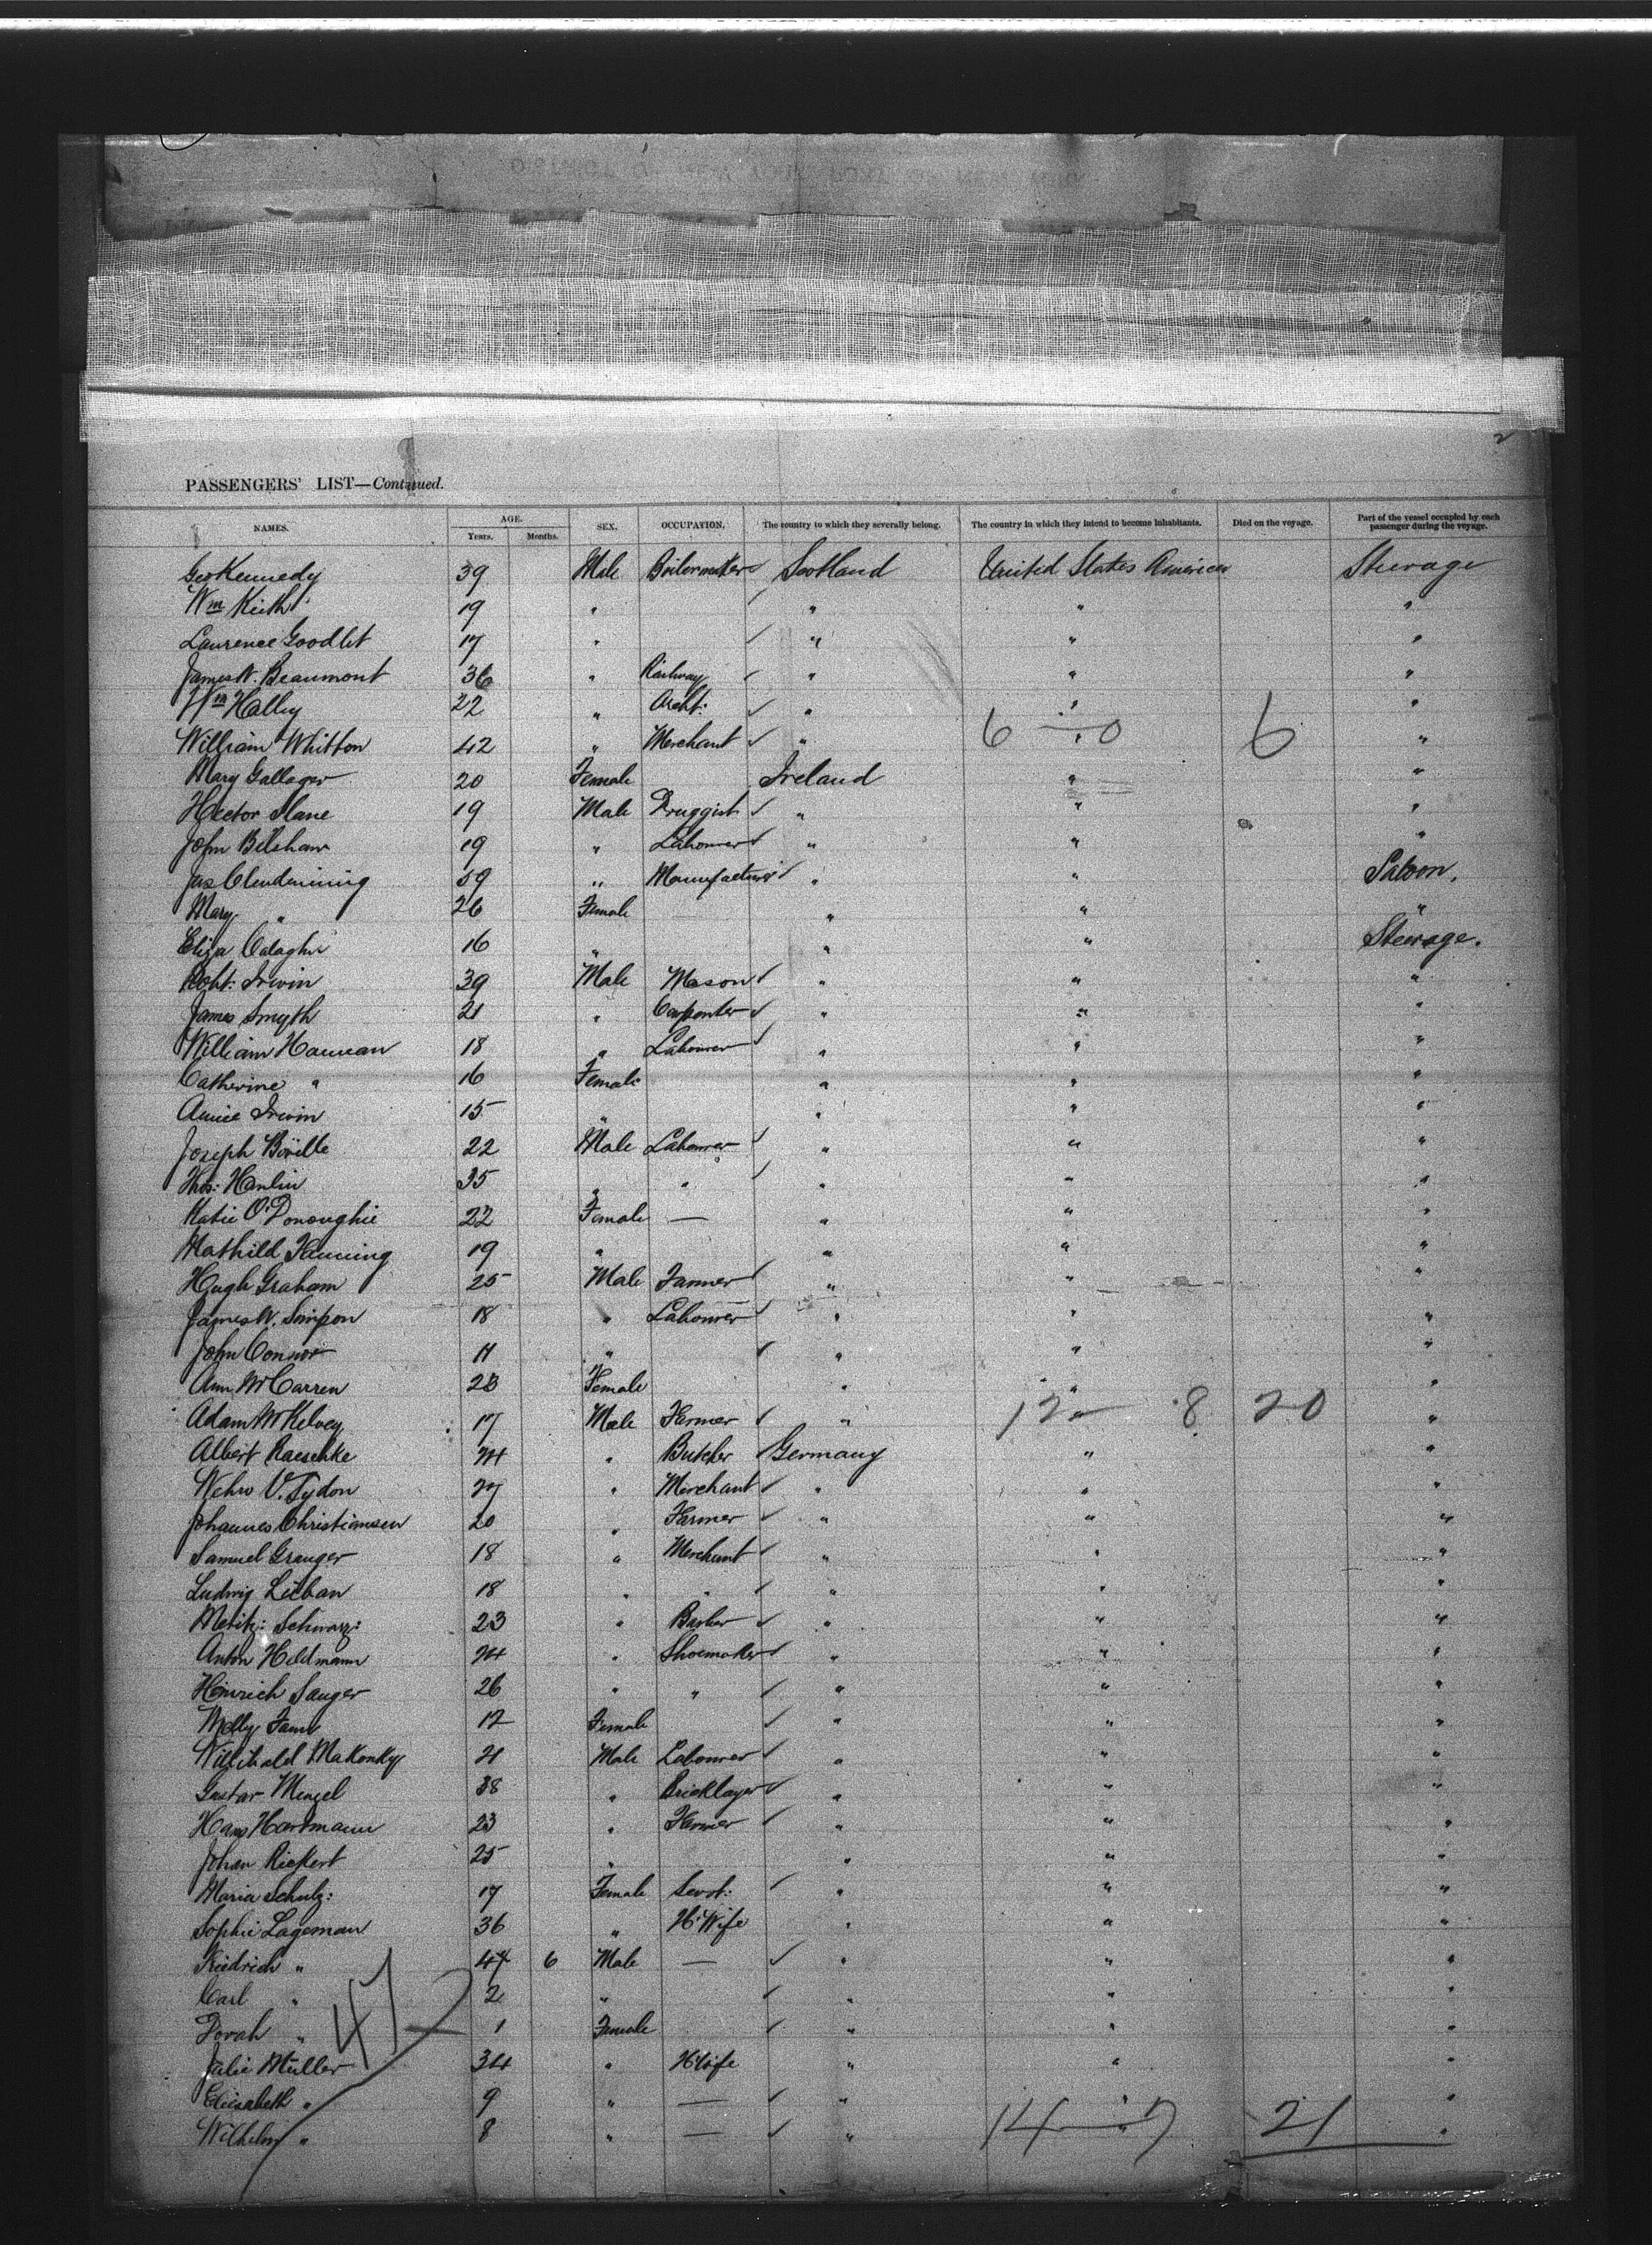 2
PASSENGERS' LIST—Continued.
NAMES. AGE. Years. Months. SEX. OCCUPATION. The country to which they severally belong. The country in which they intend to become inhabitants. Died on the voyage. Part of the vessel occupied by each passenger during the voyage.
Geo Kennedy 39 Male Boilermaker Scotland United States America Steerage
Wm Keith 19 " " " "
Laurence Goodlet 17 " " " "
James W. Beaumont 36 " Railway " " "
Wm Halley 22 " Archt: " " "
William Whitton 42 " Merchant " " " 6 — 0 6
Mary Gallager 20 Female Ireland " "
Hector Slane 19 Male Druggist " " "
John Belshaw 19 " Labourer " " "
Jas Clendenning 59 " Manufacturer " " Saloon.
Mary " 26 Female " " "
Eliza 16 " " " Steerage.
Robt: Irwin 39 Male Mason " " "
James Smyth 21 " Carpenter " " "
William Hannan 18 " Labourer " " "
Catherine " 16 Female " " "
Annie Irwin 15 " " " "
Joseph 22 Male Labourer " " "
Thos: Hanlin 35 " " " " "
Katie O'Donoughie 22 Female — " " "
Mathild Fanning 19 " " " "
Hugh Graham 25 Male Farmer " " "
James W. Simpson 18 " Labourer " " "
John Connor 11 " " " "
Ann McCarren 23 Female " " "
Adam McKelvey 17 Male Farmer " " " 12 — 8 20
Albert Raeschke 24 " Butcher Germany " "
27 " Merchant " " "
Johannes Christiansen 20 " Farmer " " "
Samuel Granger 18 " Merchant " " "
Ludwig Liban 18 " " " " "
Schwarz: 23 " " " "
Anton Heldmann 24 " Shoemaker " " "
Heinrich Sauger 26 " " " " "
Melly 12 Female " " "
Willibald Makonky 21 Male Labourer " " "
Gustav Menzel 38 " Bricklayer " " "
Hans Hartmann 23 " Farmer " " "
Johan Rickert 25 " " " "
Maria Schulz: 17 Female Servt: " " "
Sophie Lageman 36 " H'Wife " " "
Friedrich " 4 6 Male — " " "
Carl " 2 " " " "
Dorah " 1 Female " " "
47
Julie Müller 34 " H'Wife " " "
Elisabeth " 9 " — " " "
Wilhelm " 8 " — " " " 14 — 7 21